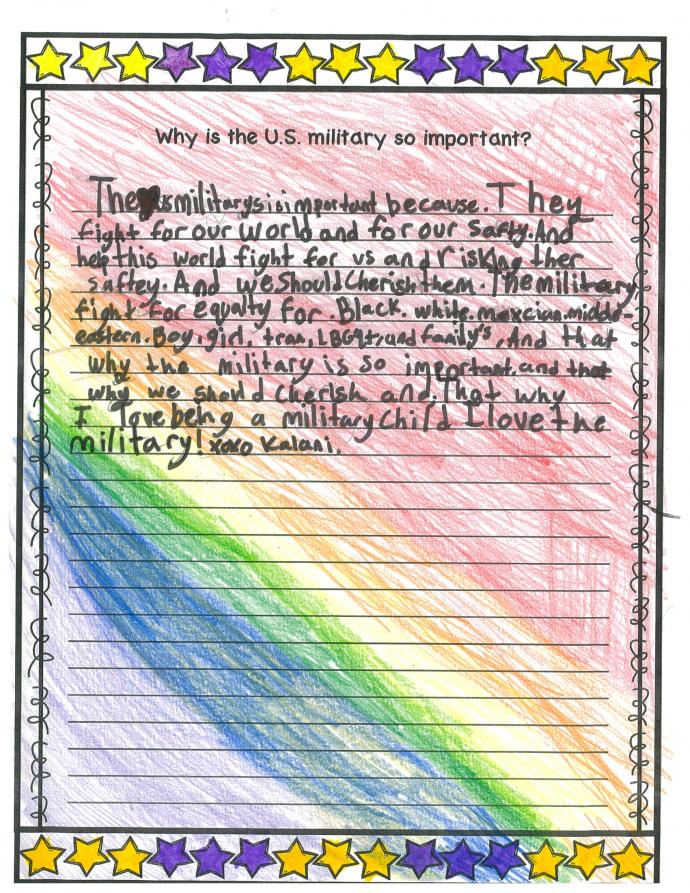 Why is the U.S. military so important?
The military is important because. They
fight for our world and for our safty. And
help this world fight for us and risking ther
saftey. And we should cherish them. The military
fight for equalty for. Black. white. mexcian. middle-
eastern. Boy, girl, tran, LBGQt, and family's, And that
why the military is so important. and that
why we should cherish and. That why
I love being a military child I love the
military! xoxo Kalani.